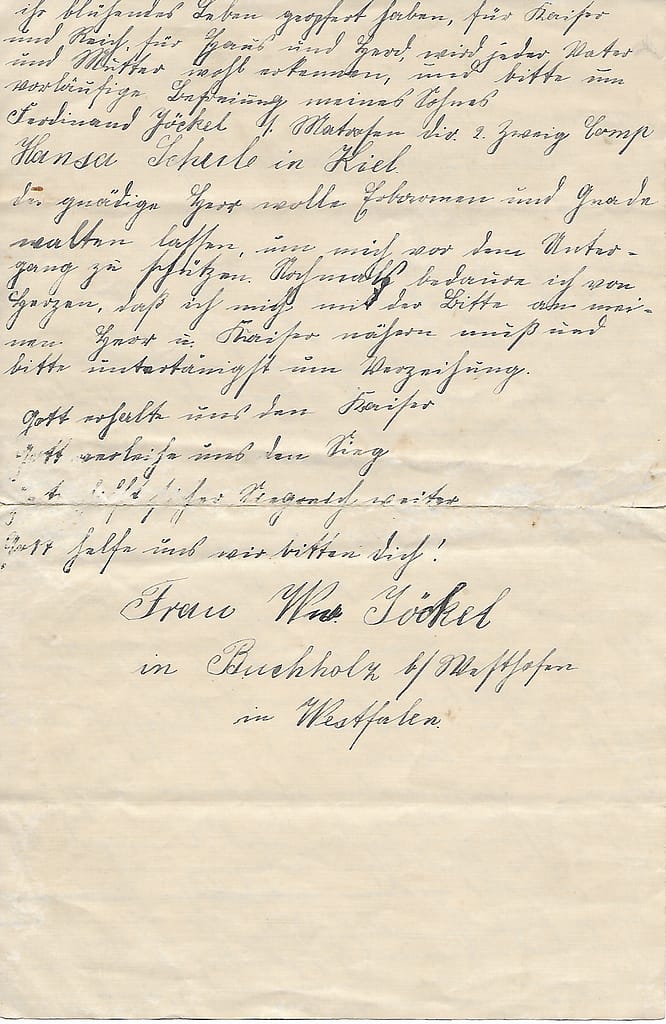 ihr blühendes Leben geopfert haben, für Kaiser
und Reich, für Haus und Herd, wird jeder Vater
und Mutter wohl erkennen, und bitte um
vorläufige Befreiung meines Sohnes
Ferdinand Jöckel 1. Matrosen Div. 2. Zweig Comp
Hansa Schule in Kiel.
der gnädige Herr wolle Erbarmen und Gnade
walten lassen, um mich vor dem Unter-
gang zu schützen. Nochmals bedaure ich von
Herzen, daß ich mich mit der Bitte an mei-
nen Herr u. Kaiser nähern muß und
bitte untertänigst um Verzeihung.
Gott erhalte uns den Kaiser
Gott verleihe uns den Sieg
siegreich weiter
Gott helfe uns wir bitten dich!
Frau Ww. Jöckel
in Buchholz b/ Westhofen
in Westfalen.